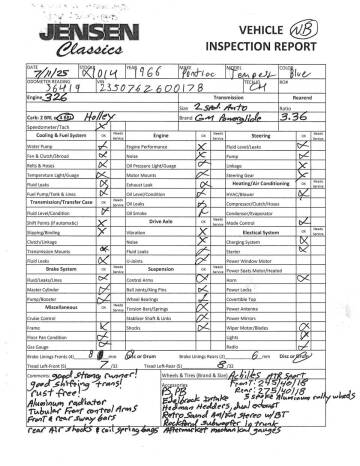 JENSEN
Classics
VEHICLE NB
INSPECTION REPORT
DATE STOCK# YEAR MAKE MODEL COLOR
7/11/25 1014 1966 Pontiac Tempest Blue
ODOMETER READING VIN TECH RO#
36419 2350762600178 CH
Engine 326 Transmission Rearend
Size 2 Spd. Auto Ratio
Carb: 2 BRL 4 BRL Holley Brand GM Powerglide 3.36
Speedometer/Tach
Cooling & Fuel System OK Needs Service Engine OK Needs Service Steering OK Needs Service
Water Pump Engine Performance Fluid Level/Leaks
Fan & Clutch/Shroud Noise Pump
Belts & Hoses Oil Pressure Light/Guage Linkage
Temperature Light/Guage Motor Mounts Steering Gear
Fluid Leaks Exhaust Leak Heating/Air Conditioning OK Needs Service
Fuel Pump/Tank & Lines Oil Level/Condition HVAC/Blower
Transmission/Transfer Case OK Needs Service Oil Leaks Compressor/Clutch/Hoses
Fluid Level/Condition Oil Smoke Condenser/Evaporator
Shift Points (if automatic) Drive Axle OK Needs Service Mode Control
Slipping/Binding Vibration Electical System OK Needs Service
Clutch/Linkage Noise Charging System
Transmission Mounts Fluid Leaks Starter
Fluid Leaks U-Joints Power Window Motor
Brake System OK Needs Service Suspension OK Needs Service Power Seats Motor/Heated
Fluid/Leaks/Lines Control Arms Horn
Master Cylinder Ball Joints/King Pins Power Locks
Pump/Booster Wheel Bearings Covertible Top
Miscellaneous OK Needs Service Torsion Bar/Springs Power Antenna
Cruise Control Stabilizer Shaft & Links Power Mirrors
Frame Shocks Wiper Motor/Blades
Floor Pan Condition Lights
Gas Guage Radio
Brake Linings Fronts (4) 8 /mm Disc or Drum Brake Linings Rears (4) 6 /mm Disc or Drum
Tread Left-Front (5) 7 /32 Tread Left-Rears (5) 8 /32
Comments: good strong runner!
good shifting trans!
rust free!
Aluminum radiator
Tubular Front control Arms
Front & rear sway bars
rear Air shocks & coil spring bags
Wheels & Tires (Brand & Size) Achilles ATR Sport
Front: 245/40/18
Rear: 275/40/18
Accessories
PS, PB 5 spoke Aluminum rally wheels
Edelbrock Intake
Hedman Hedders, dual exhaust
Retro Sound Am/Fm Stereo w/BT
Rockford subwoofer in trunk
Aftermarket mechanical gauges